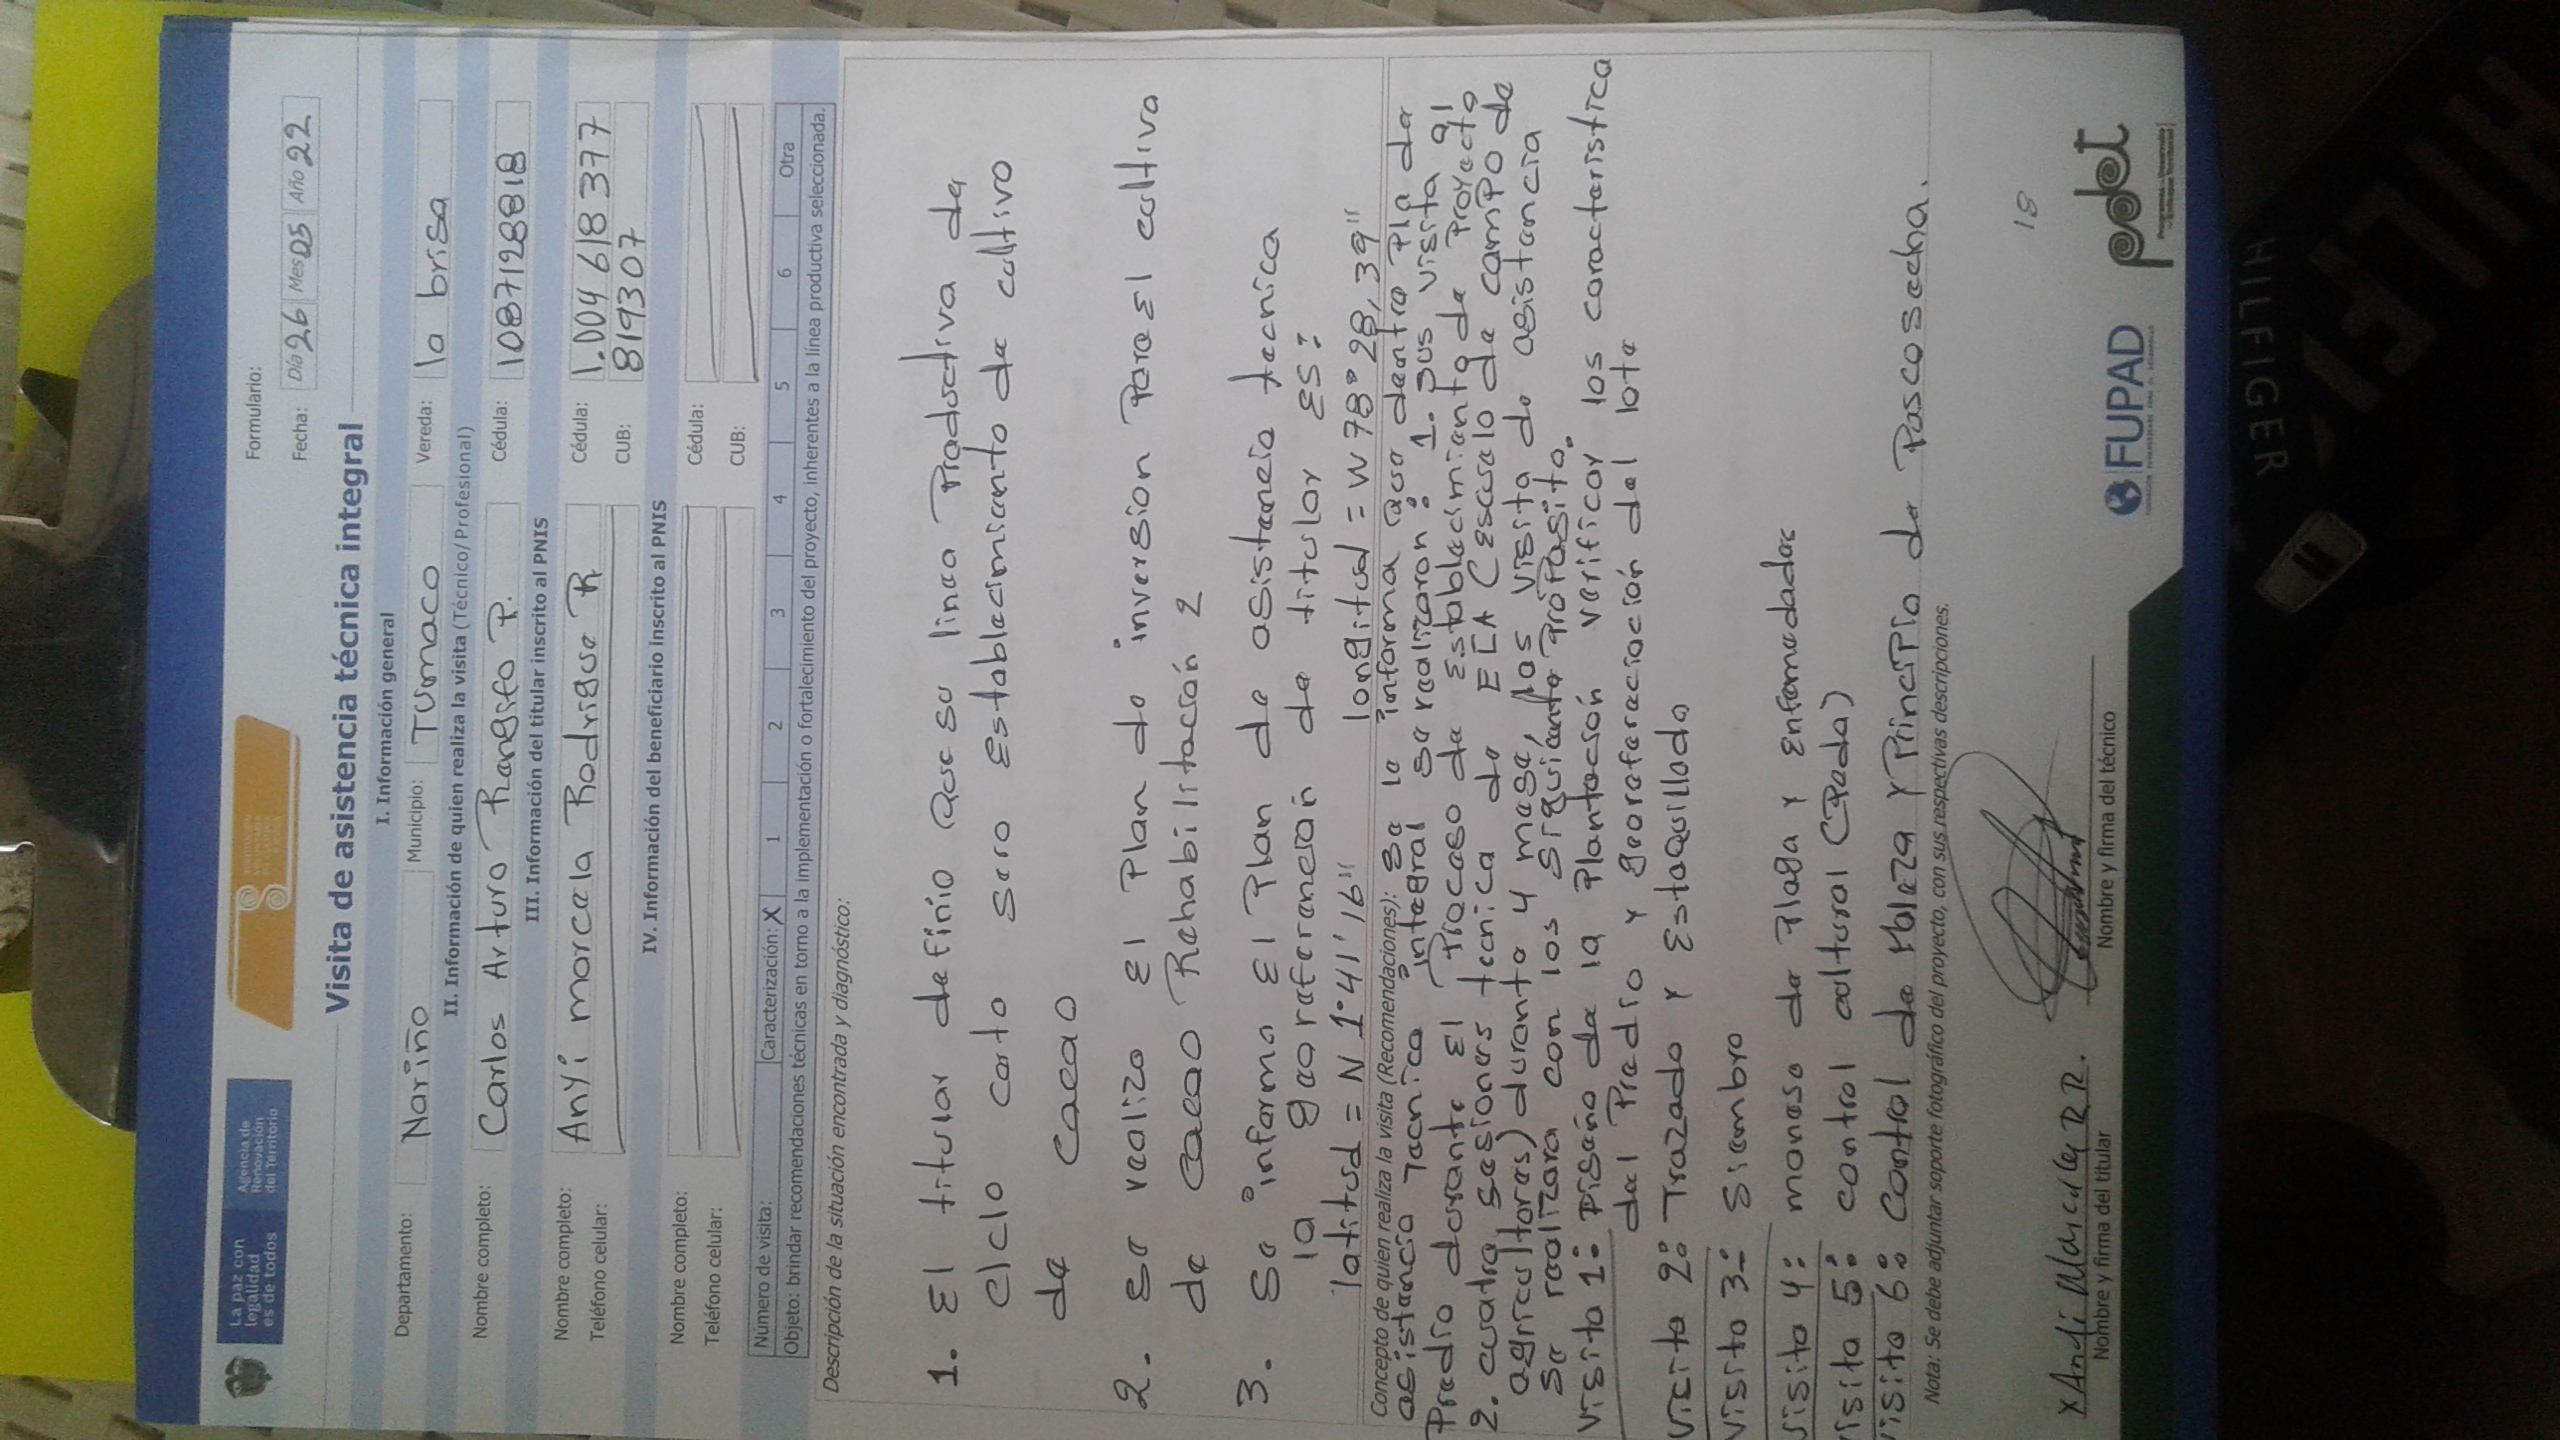 La paz con
legalidad
es de todos
Agencia de
Renovación
del Territorio
Formulario:
Fecha: Día 26 Mes 05 Año 22
Visita de asistencia técnica integral
I. Información general
Departamento: Nariño Municipio: Tumaco Vereda: la brisa
II. Información de quien realiza la visita (Técnico/Profesional)
Nombre completo: Carlos Arturo Rengifo P. Cédula: 1087128818
III. Información del titular inscrito al PNIS
Nombre completo: Anyi morcela Rodrigue R Cédula: 1.004 618 377
Teléfono celular: CUB: 8193307
IV. Información del beneficiario inscrito al PNIS
Nombre completo: Cédula:
Teléfono celular: CUB:
Número de visita: Caracterización: X 1 2 3 4 5 6 Otra
Objeto: brindar recomendaciones técnicas en torno a la implementación o fortalecimiento del proyecto, inherentes a la línea productiva seleccionada.
Descripción de la situación encontrada y diagnóstico:
1. El titular definio que su linea Productiva de
ciclo corto sera Establecimiento de cultivo
de Cacao
2. Se realizo El Plan de inversion Para El cultivo
de cacao Rehabilitación 2
3. Se informo El Plan de asistencia tecnica
la georeferencian de titular ES:
latitud = N 1°41'16" longitud = W 78°28,39"
Concepto de quien realiza la visita (Recomendaciones): Se le informa que dentro Pla de
asistencia Tecnica integral se realizaron: 1. sus visita al
Predio durante El Proceso de Establecimiento de Proyecto
2. cuatra sesiones tecnica de ECA (escuela de camPo de
agricultores) durante 4 mese, las visita de asistencia
se realizara con los siguiente ProPosito.
Visita 1: Diseño de la Plantación verificar los caracteristica
del Predio y georeferaciación del lote
Visita 2: Trazado y EstaQuillado
Visito 3: Siembro
Visita 4: maneso de Plaga y Enfermedades
Visita 5: control cultural (Poda)
Visita 6: Control de Maleza y PrinciPio de Poscosecha.
Nota: Se debe adjuntar soporte fotográfico del proyecto, con sus respectivas descripciones.
18
x Andi Marcela R R.
Nombre y firma del titular
Nombre y firma del técnico
FUPAD
pdet
HILFIGER